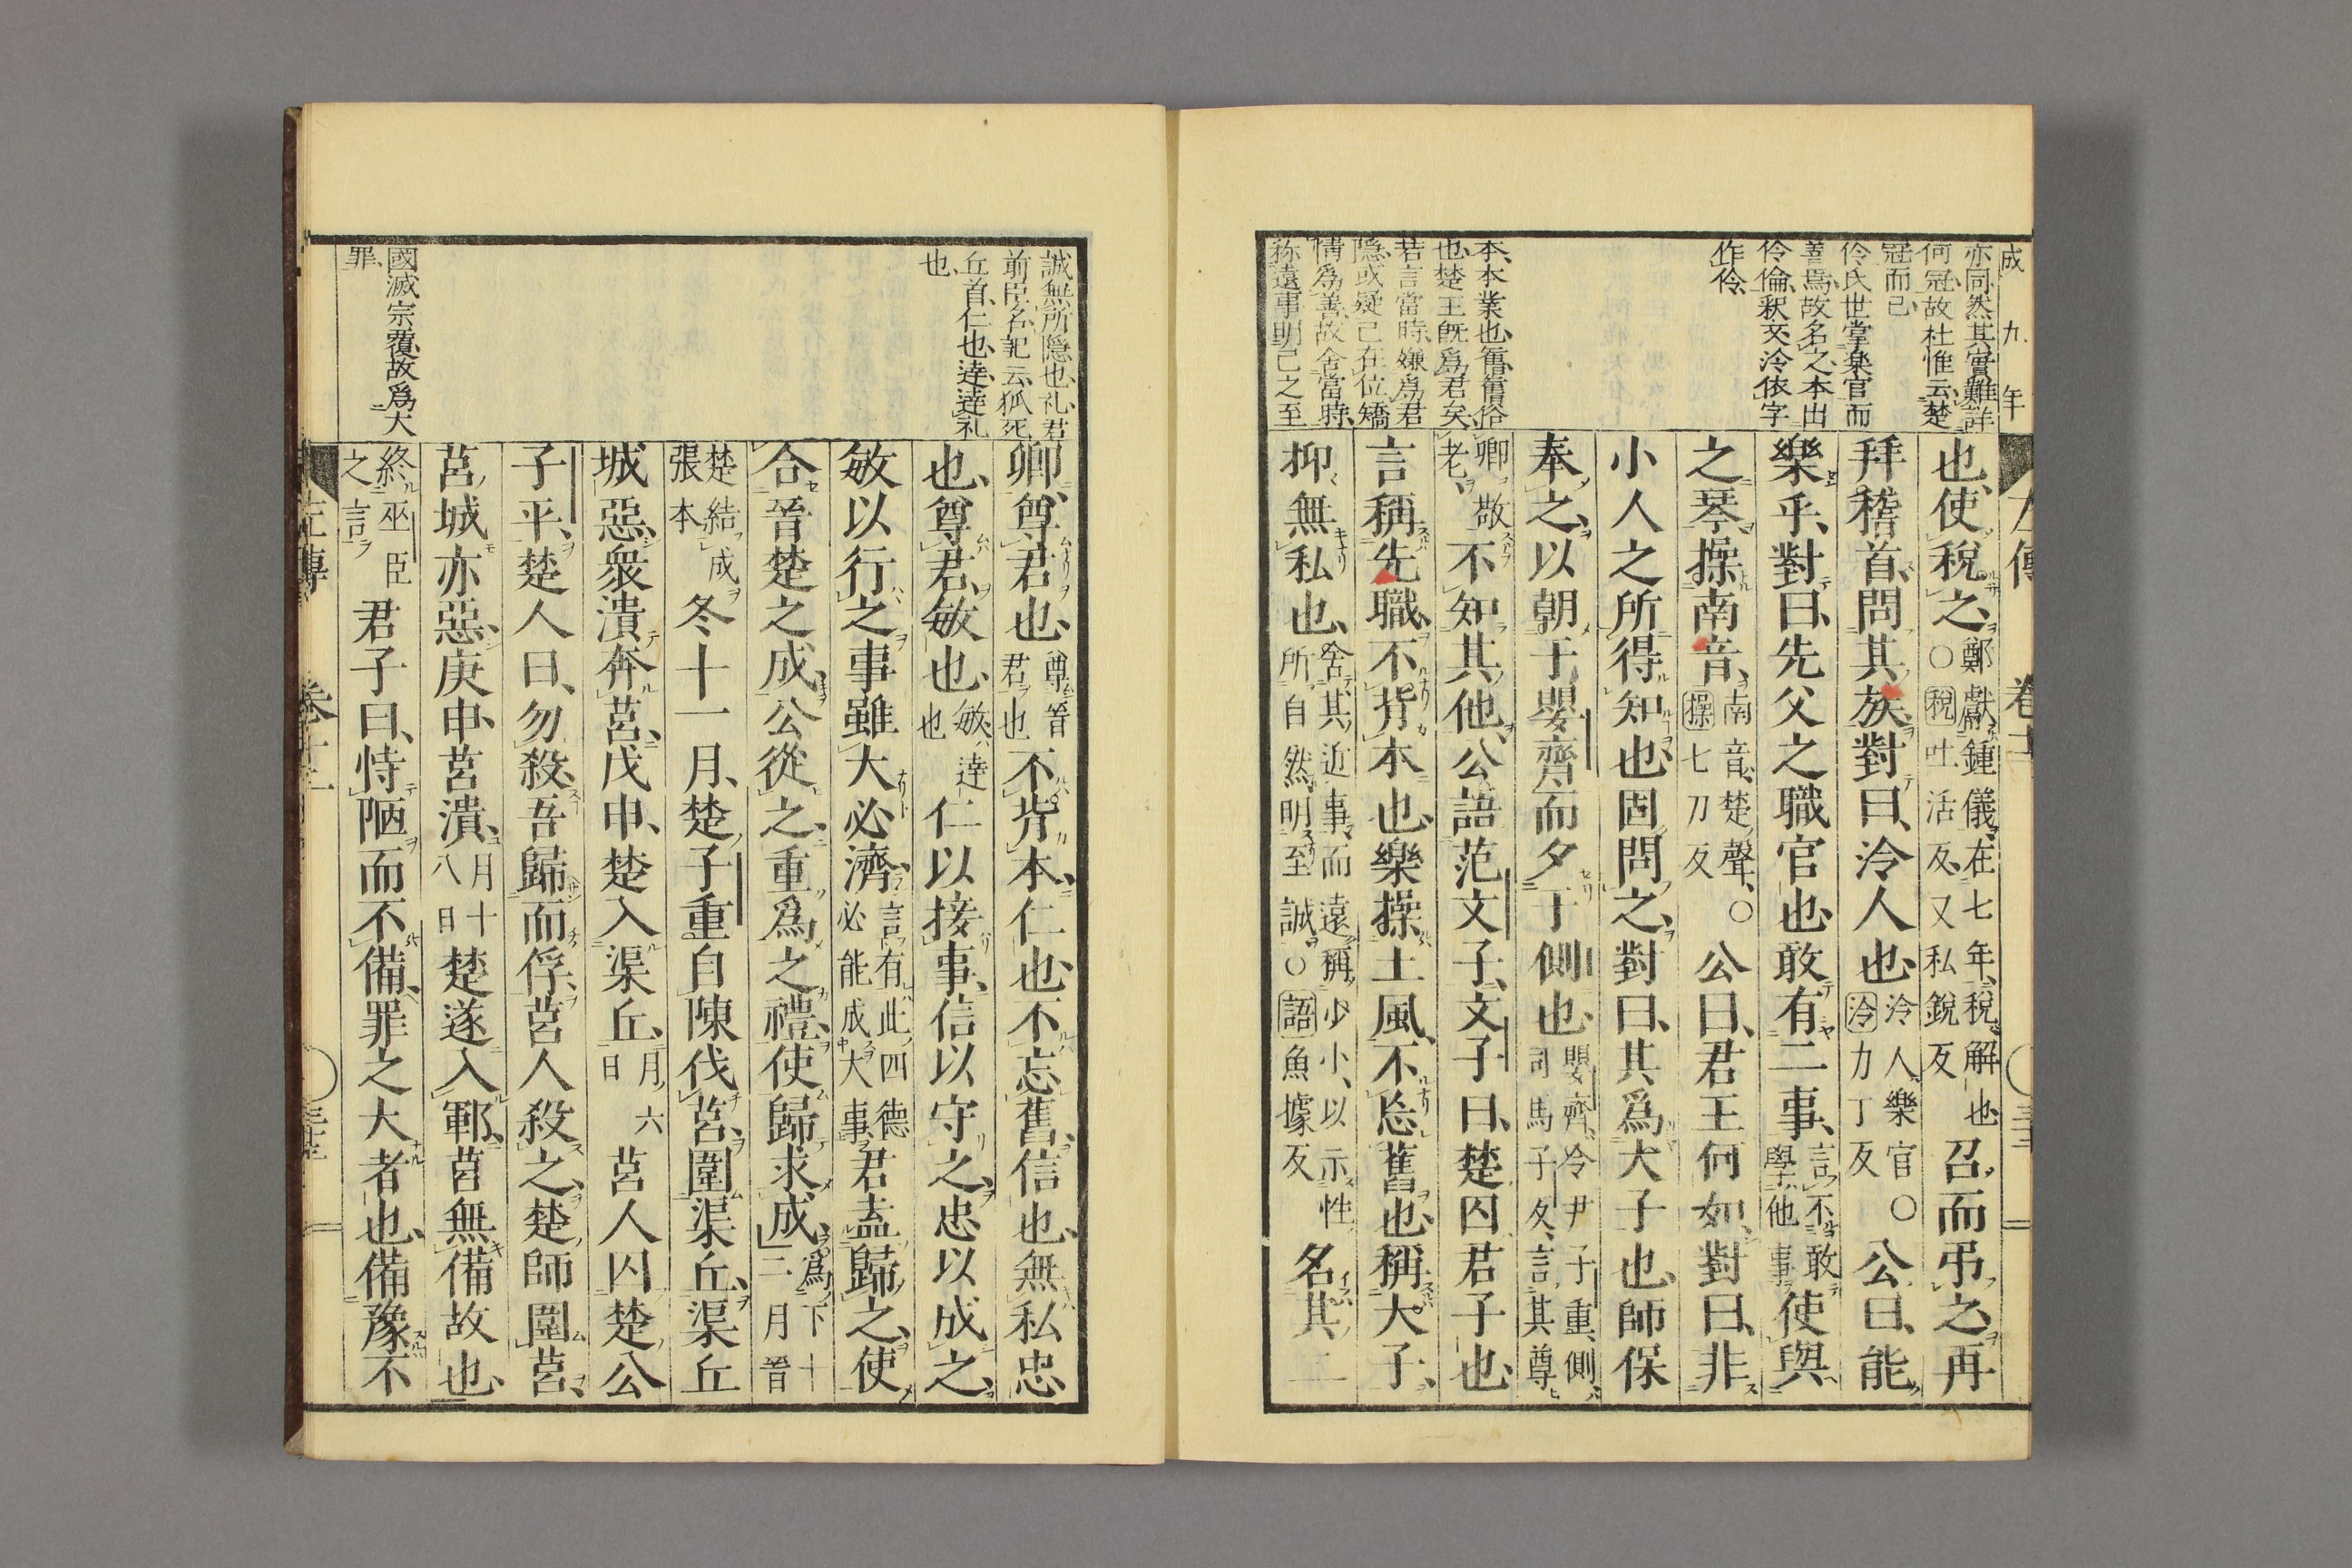 成九年
亦同然其實難詳
何冠故杜惟云楚
冠而已
伶氏世掌樂官而
善焉故名之本出
伶倫釈文泠依字
作伶
本本業也舊舊俗
也楚王既爲君矣
若言當時嫌爲君
隠或疑己在位矯
情爲善故舍當時
称遠事明己之至
也使稅之〇鄭獻鍾儀在七年稅解也稅吐活反又私銳反召而弔之再
拜稽首問其族對曰泠人也泠人樂官〇泠力丁反公曰能
樂乎對曰先父之職官也敢有二事言不敢學他事使與
之琴操南音南音楚聲〇操七刀反公曰君王何如對曰非
小人之所得知也固問之對曰其爲大子也師保
奉之以朝于嬰齊而夕于側也嬰齊令尹子重側司馬子反言其尊
卿敬老不知其他公語范文子文子曰楚囚君子也
言稱先職不背本也樂操土風不忘舊也稱大子
抑無私也舍其近事而遠稱少小以示性所自然明至誠〇語魚據反名其二
誠無所隠也礼君
前臣名記云狐死
丘首仁也達達礼
也
國滅宗覆故爲大
罪
卿尊君也尊晉君也不背本仁也不忘舊信也無私忠
也尊君敏也敏達也仁以接事信以守之忠以成之
敏以行之事雖大必濟言有此四德必能成大事君盍歸之使
合晉楚之成公從之重爲之禮使歸求成爲下十二月晉
楚結成張本冬十一月楚子重自陳伐莒圍渠丘渠丘
城惡衆潰奔莒戊申楚入渠丘月六日莒人囚楚公
子平楚人曰勿殺吾歸而俘莒人殺之楚師圍莒
莒城亦惡庚申莒潰月十八日楚遂入鄆莒無備故也
終巫臣之言君子曰恃陋而不備罪之大者也備豫不